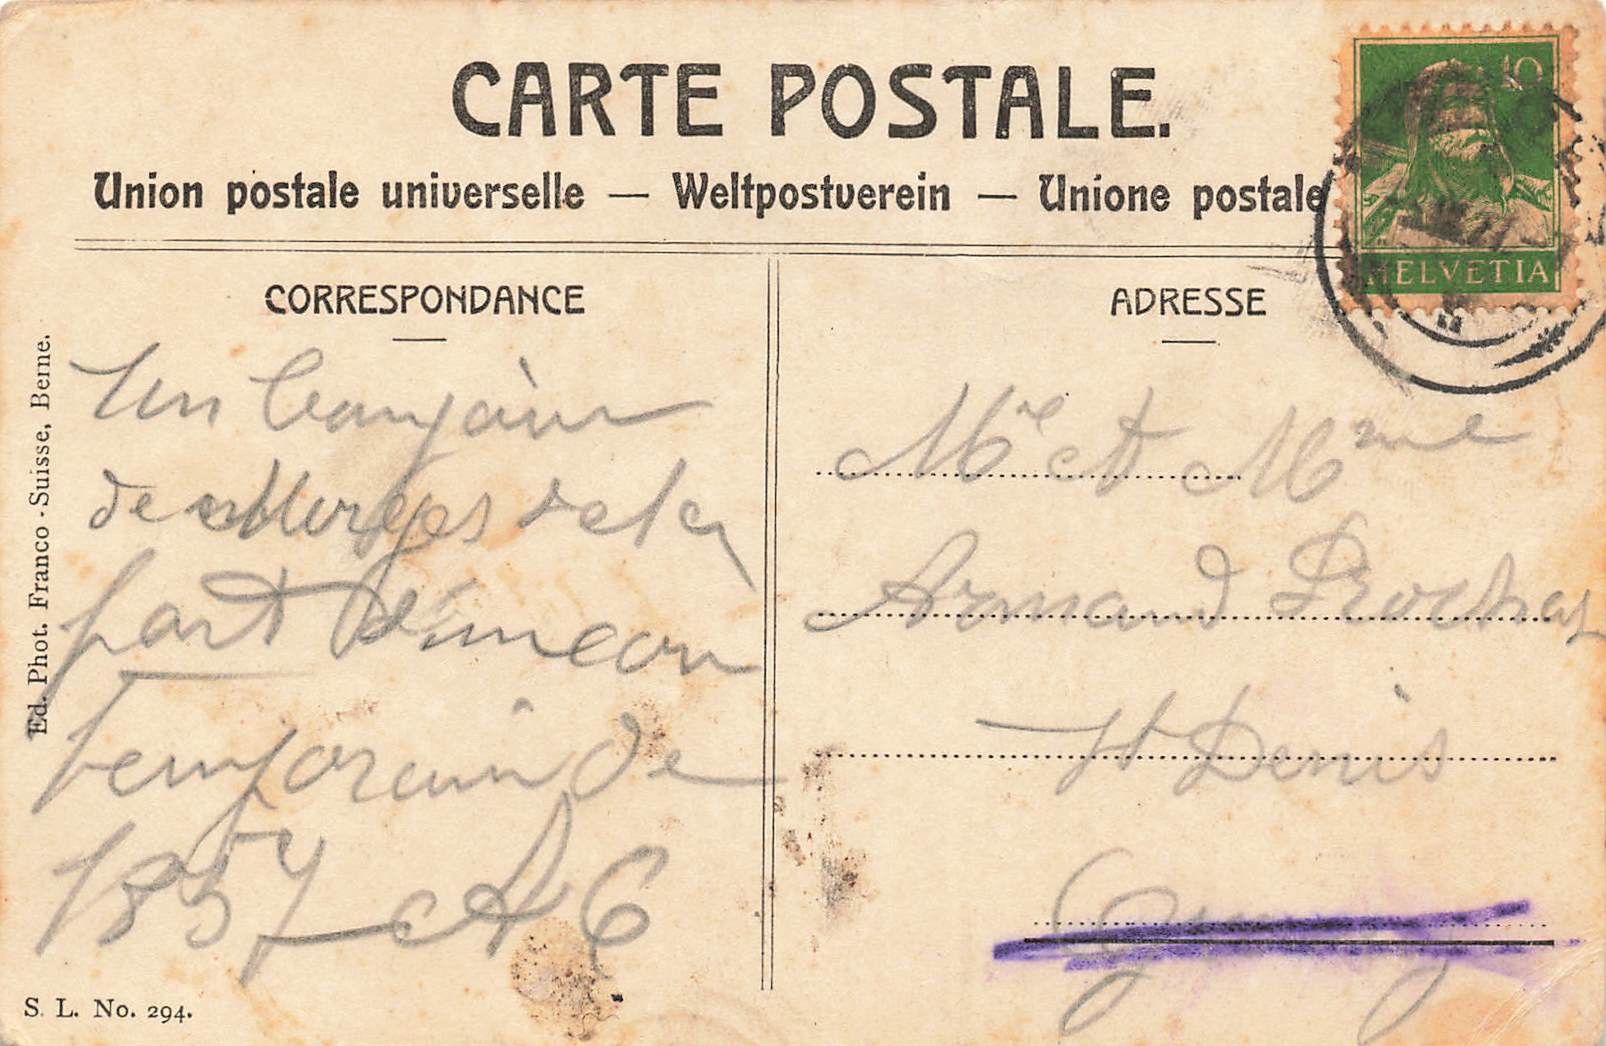 CARTE POSTALE.
Union postale universelle — Weltpostverein — Unione postale
CORRESPONDANCE
ADRESSE
10
HELVETIA
Un bonjour
de Morges de la
part d'un con
temporain de
1857 A C
Mr et Mme
Armand Rochat
St Denis
Ed. Phot. Franco-Suisse, Berne.
S. L. No. 294.